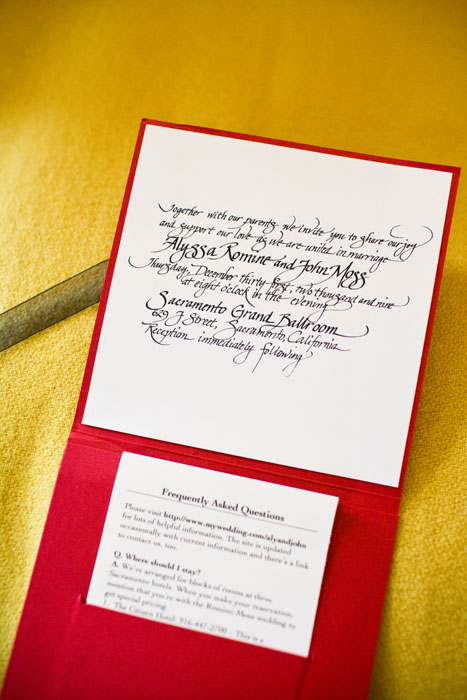 Together with our parents we invite you to share our joy
and support our love as we are united in marriage
Alyssa Romine and John Moss
Thursday, December thirty first, two thousand and nine
at eight o'clock in the evening
Sacramento Grand Ballroom
629 J Street, Sacramento, California
Reception immediately following
Frequently Asked Questions
Please visit http://www.mywedding.com/alyandjohn
for lots of helpful information. The site is updated
occasionally with current information and there's a link
to contact us, too.
Q. Where should I stay?
A. We've arranged for blocks of rooms at these
Sacramento hotels. When you make your reservation,
mention that you're with the Romine-Moss wedding to
get special pricing.
1. The Citizen Hotel 916-447-2700 – This is a